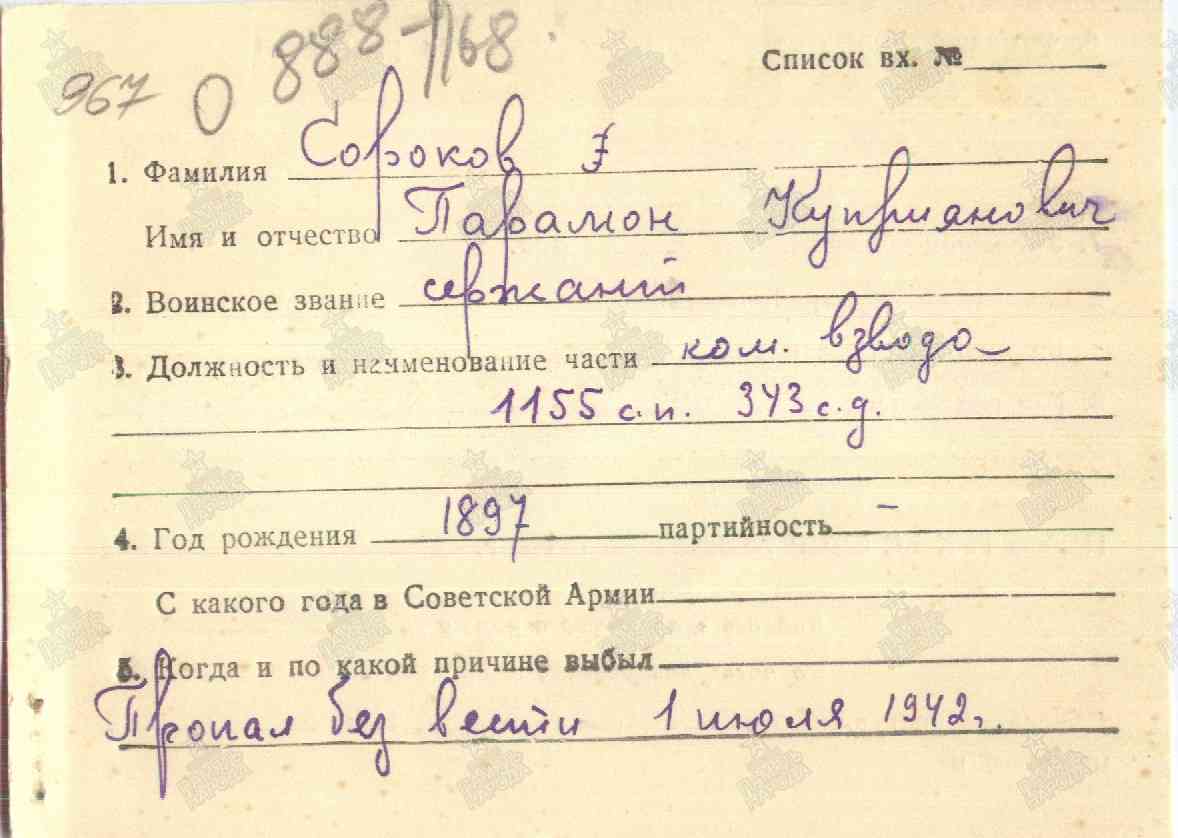 967 О 888-1168
Список вх. №
1. Фамилия Сороков
Имя и отчество Парамон Куприянович
2. Воинское звание сержант
3. Должность и наименование части ком. взвода
1155 с.п. 343 с.д.
4. Год рождения 1897 партийность –
С какого года в Советской Армии
5. Когда и по какой причине выбыл
Пропал без вести 1 июля 1942г.